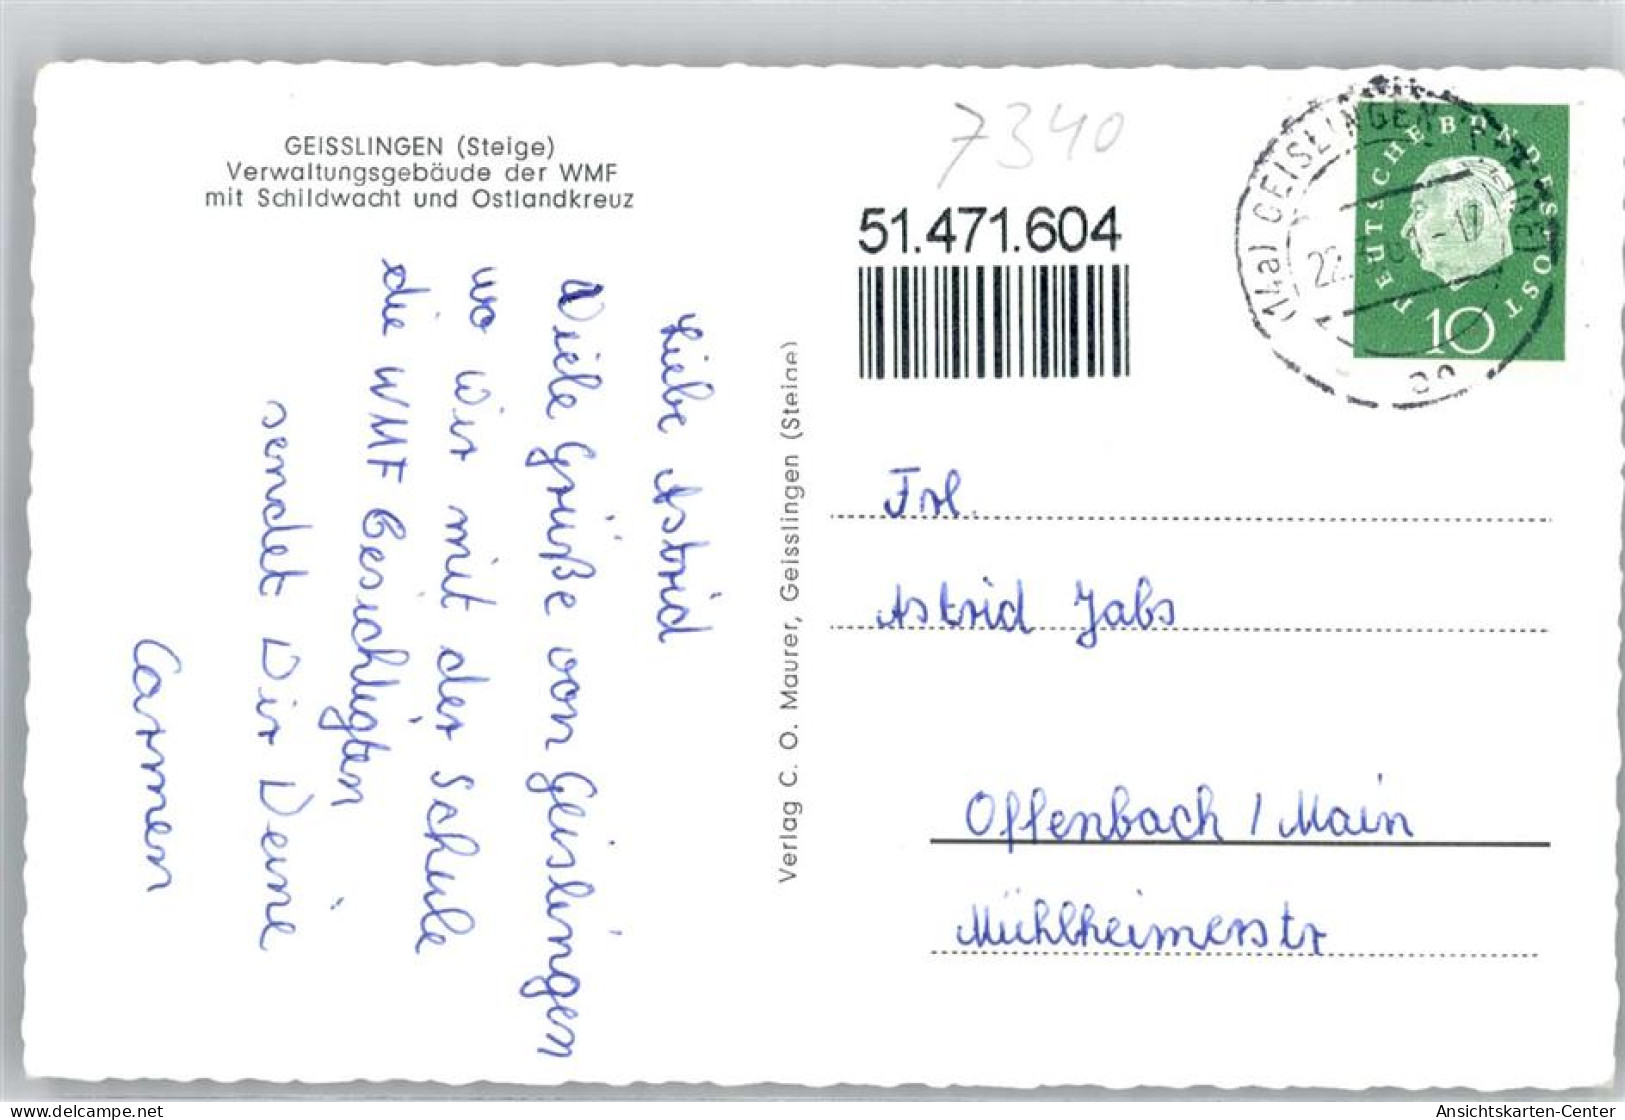 GEISSLINGEN (Steige)
Verwaltungsgebäude der WMF
mit Schildwacht und Ostlandkreuz
Liebe Astrid
Viele Grüße von Geislingen
wo wir mit der Schule
die WMF besichtigten
sendet Dir Deine
Carmen
Verlag C. O. Maurer, Geisslingen (Steige)
7340
51.471.604
(14a) GEISLINGEN
22.
-17
DEUTSCHE BUNDESPOST
10
Frl.
Astrid Jabs
Offenbach / Main
Mühlheimerstr
delcampe.net
Ansichtskarten-Center